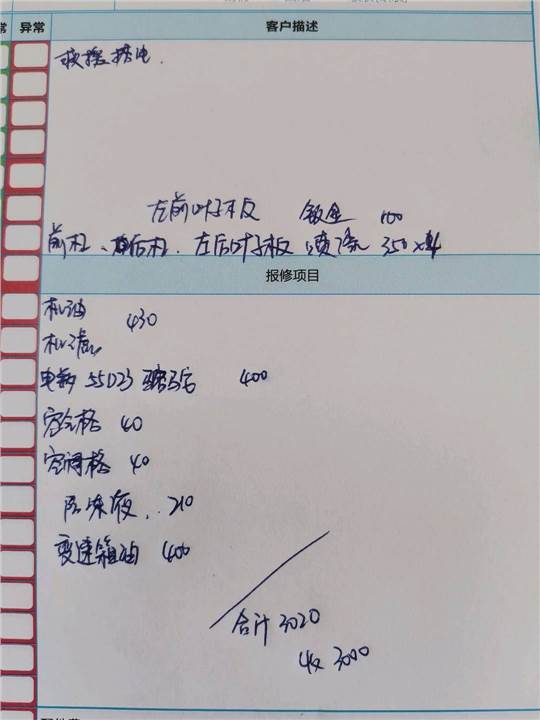 异常 客户描述
搭电.
左前叶子板 钣金 100
前杠、后杠. 左后叶子板 喷漆 350×4
报修项目
机油 430
机滤
电瓶 55D23 骆驼 400
空气格 40
空调格 40
防冻液.. 210
变速箱油 400
合计 3020
收 3000